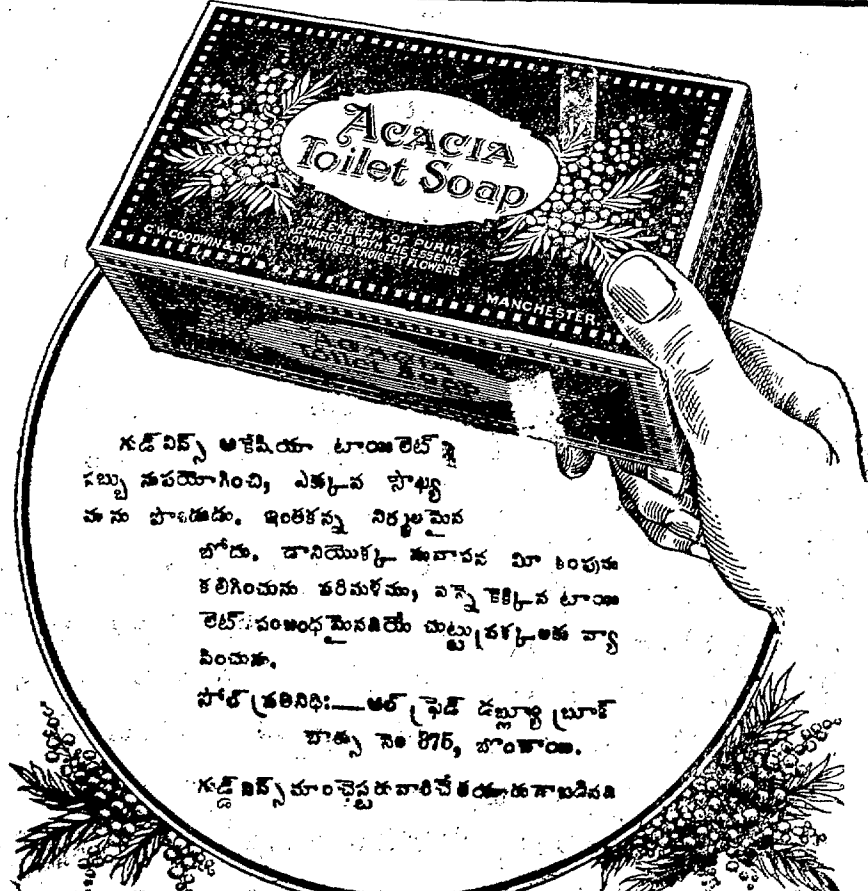 ACACIA
Toilet Soap
THE EMBLEM OF PURITY
CHARGED WITH THE ESSENCE
OF NATURES CHOICEST FLOWERS
G.W. GOODWIN & SON
MANCHESTER
ACACIA
Toilet Soap
గుడ్ విన్స్ ఆకేషియా టాయిలెట్
సబ్బు నుపయోగించి, ఎక్కువ సౌఖ్య
మును పొందుడు. ఇంతకన్న నిర్మలమైన
బోదు. దానియొక్క సువాసన మీ కింపును
కలిగించును పరిమళము, వన్నె కెక్కిన టాయి
లెట్ సంబంధమైనదియే చుట్టుప్రక్కలకు వ్యా
పించును.
సోల్ ప్రతినిధి:—ఆల్ ఫ్రెడ్ డబ్ల్యూ బ్రూక్
బాక్సు నెం 675, బొంబాయి.
గుడ్డ్ విన్స్ మాంచెస్టరు వారిచే తయారుగాబడినది